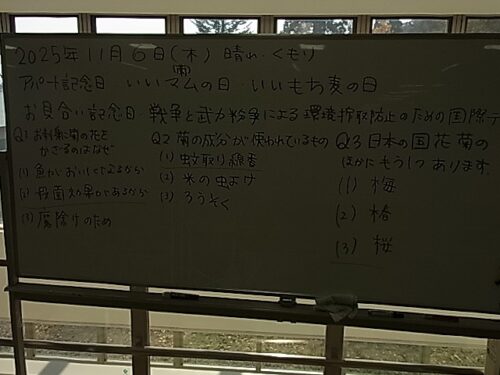 2025年11月6日(木) 晴れ・くもり
アパート記念日 いいマムの日・いいもち麦の日
お見合い記念日・戦争と武力紛争による環境搾取防止のための国際デ
Q1 お刺身に菊の花を
かざるのはなぜ
(1) 魚がおいしくなるから
(2) 殺菌効果があるから
(3) 魔除けのため
Q2 菊の成分が使われているもの
(1) 蚊取り線香
(2) 米の虫よけ
(3) ろうそく
Q3 日本の国花 菊の
ほかにもう1つあります。
(1) 梅
(2) 椿
(3) 桜